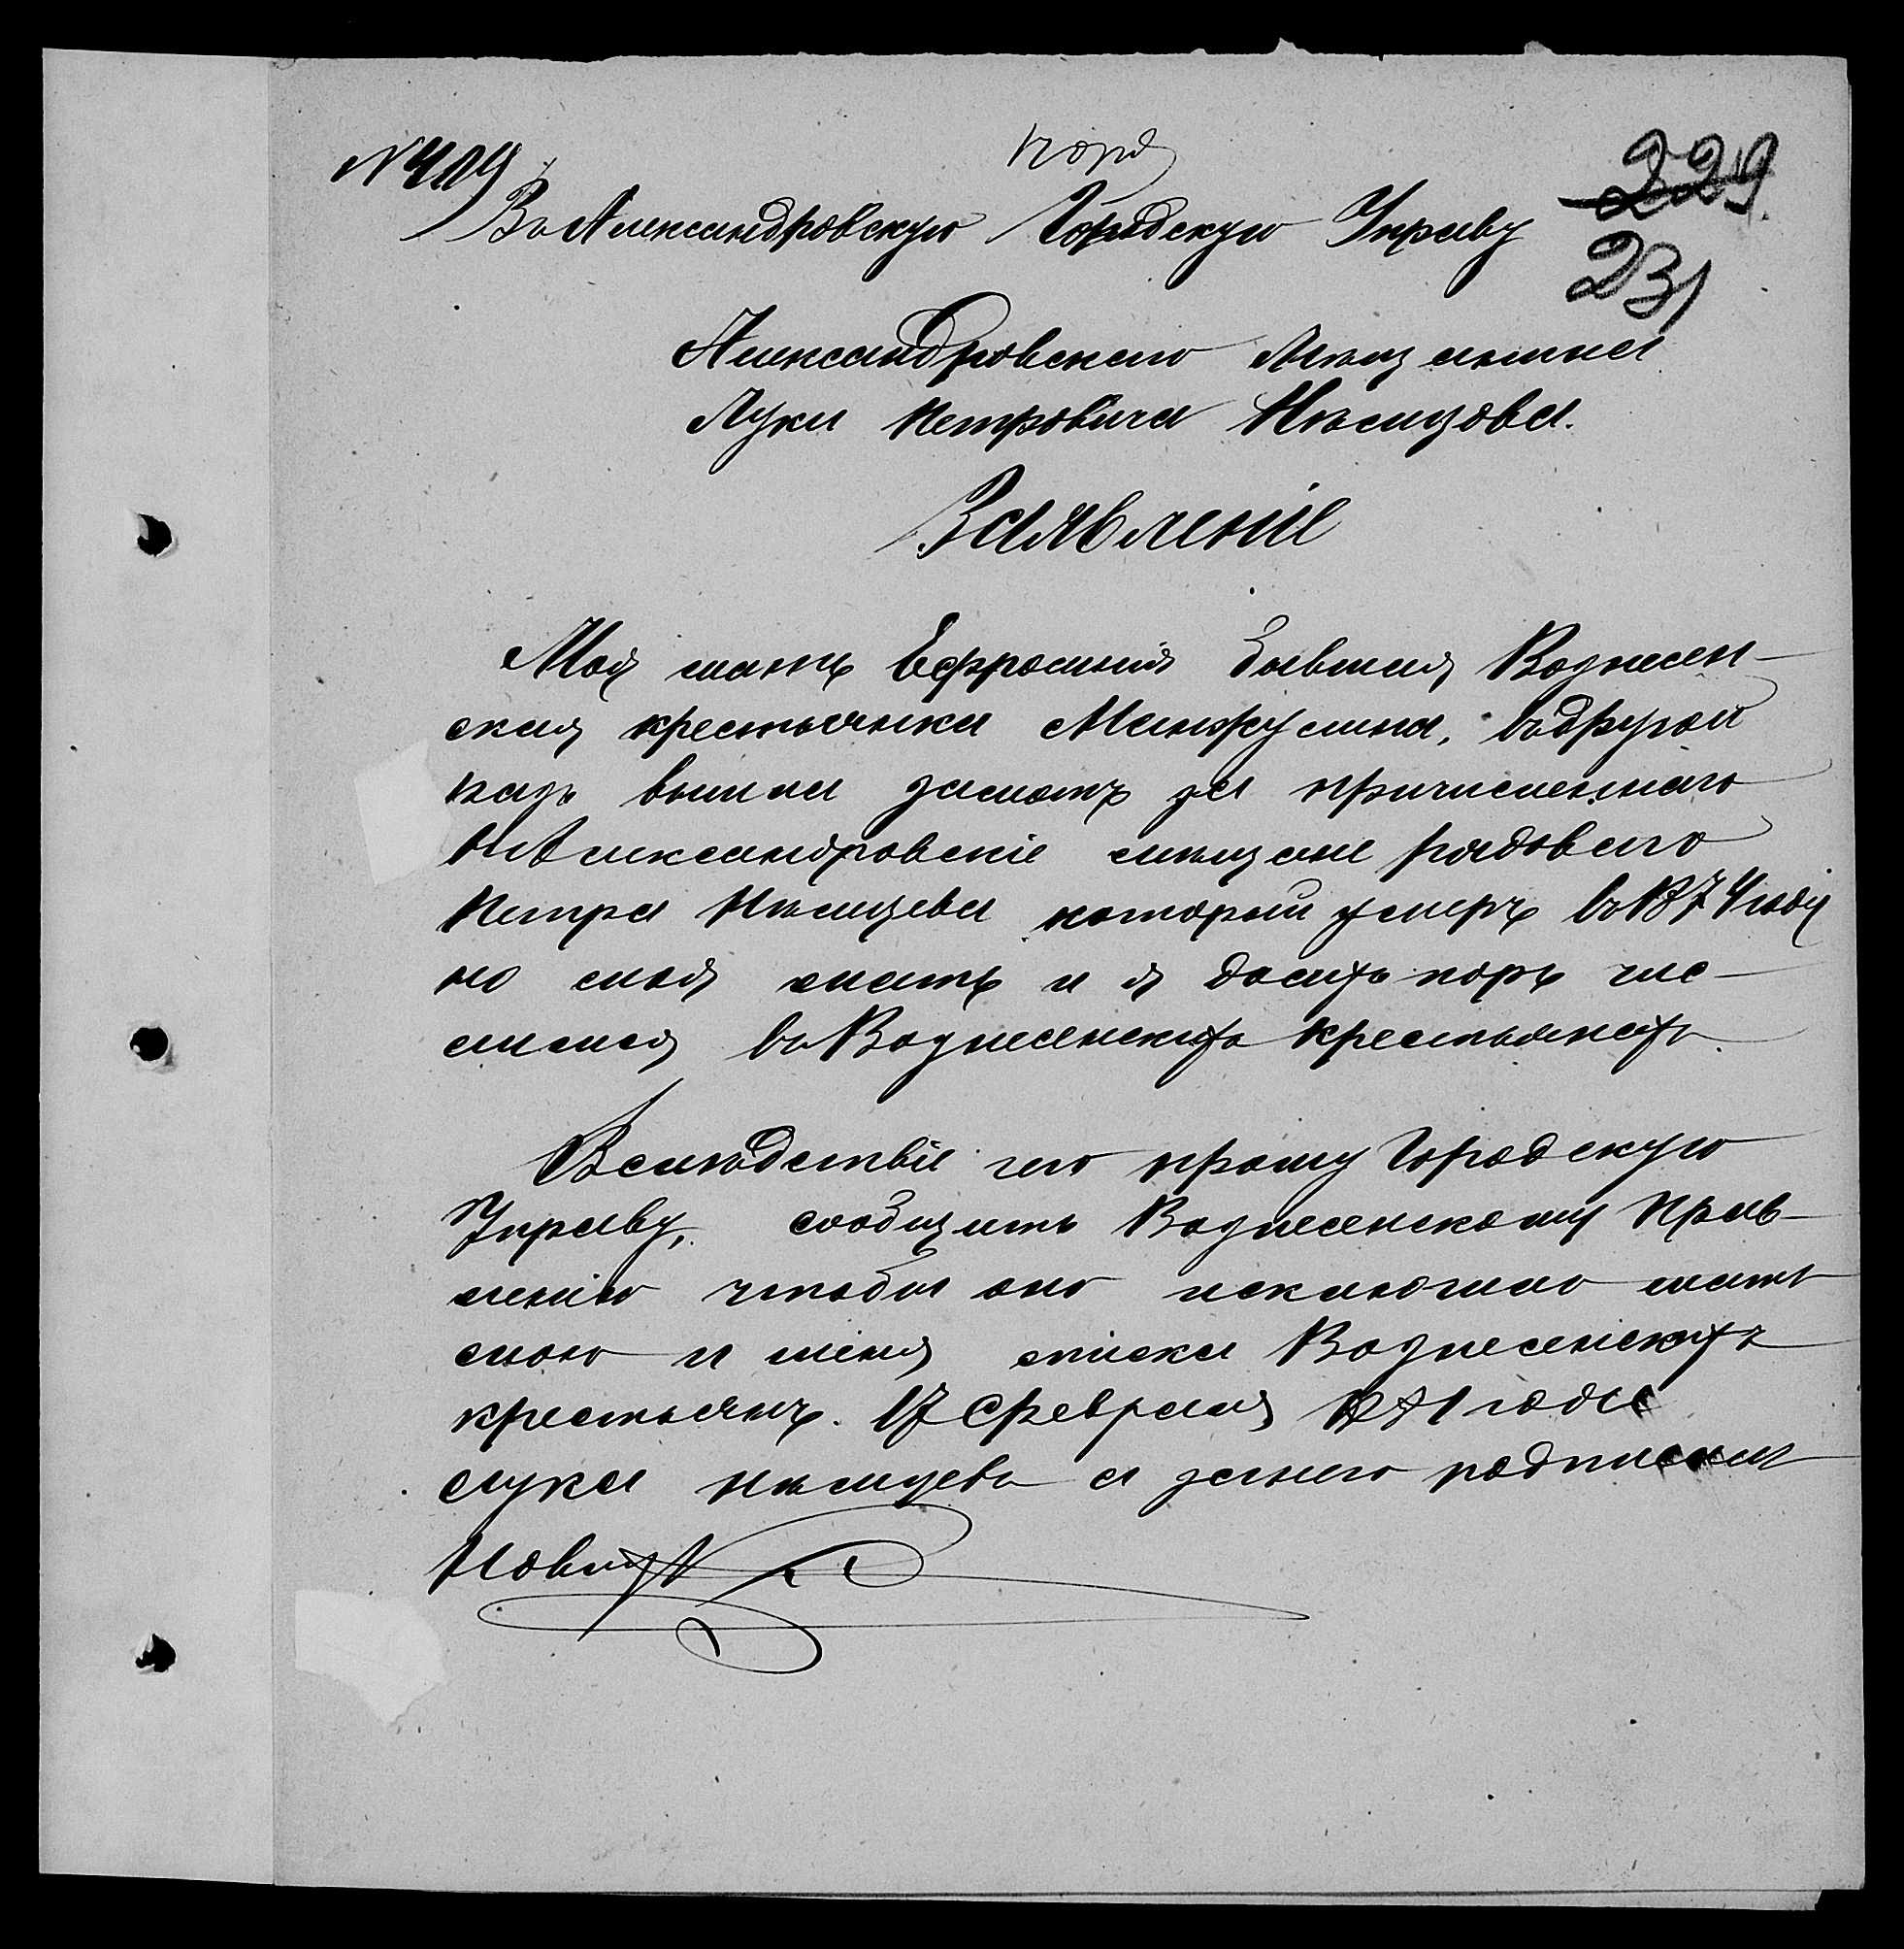 229
231
Въ Александровскую Городскую Управу
Александровскаго мѣщанина
Луки Петровича Нѣмцова.
Заявленіе
Моя мать Ефросинія бывшая Вознесен-
ская крестьянка Манжулина, въ другой
разъ вышла замужъ за причисленнаго
въ Александровскіе мѣщане рядового
Петра Нѣмцева который умеръ въ 1874 годѣ
но моя мать и я до сихъ поръ чис-
лимся въ Вознесенскихъ крестьянехъ.
Вслѣдствіе чего прошу Городскую
Управу, сообщить Вознесенскому Прав-
ленію чтобы оно исключило мать
мою и меня списка Вознесенскихъ
крестьянъ. 17 Февраля года
Лука Нѣмцевъ а за него подписалъ